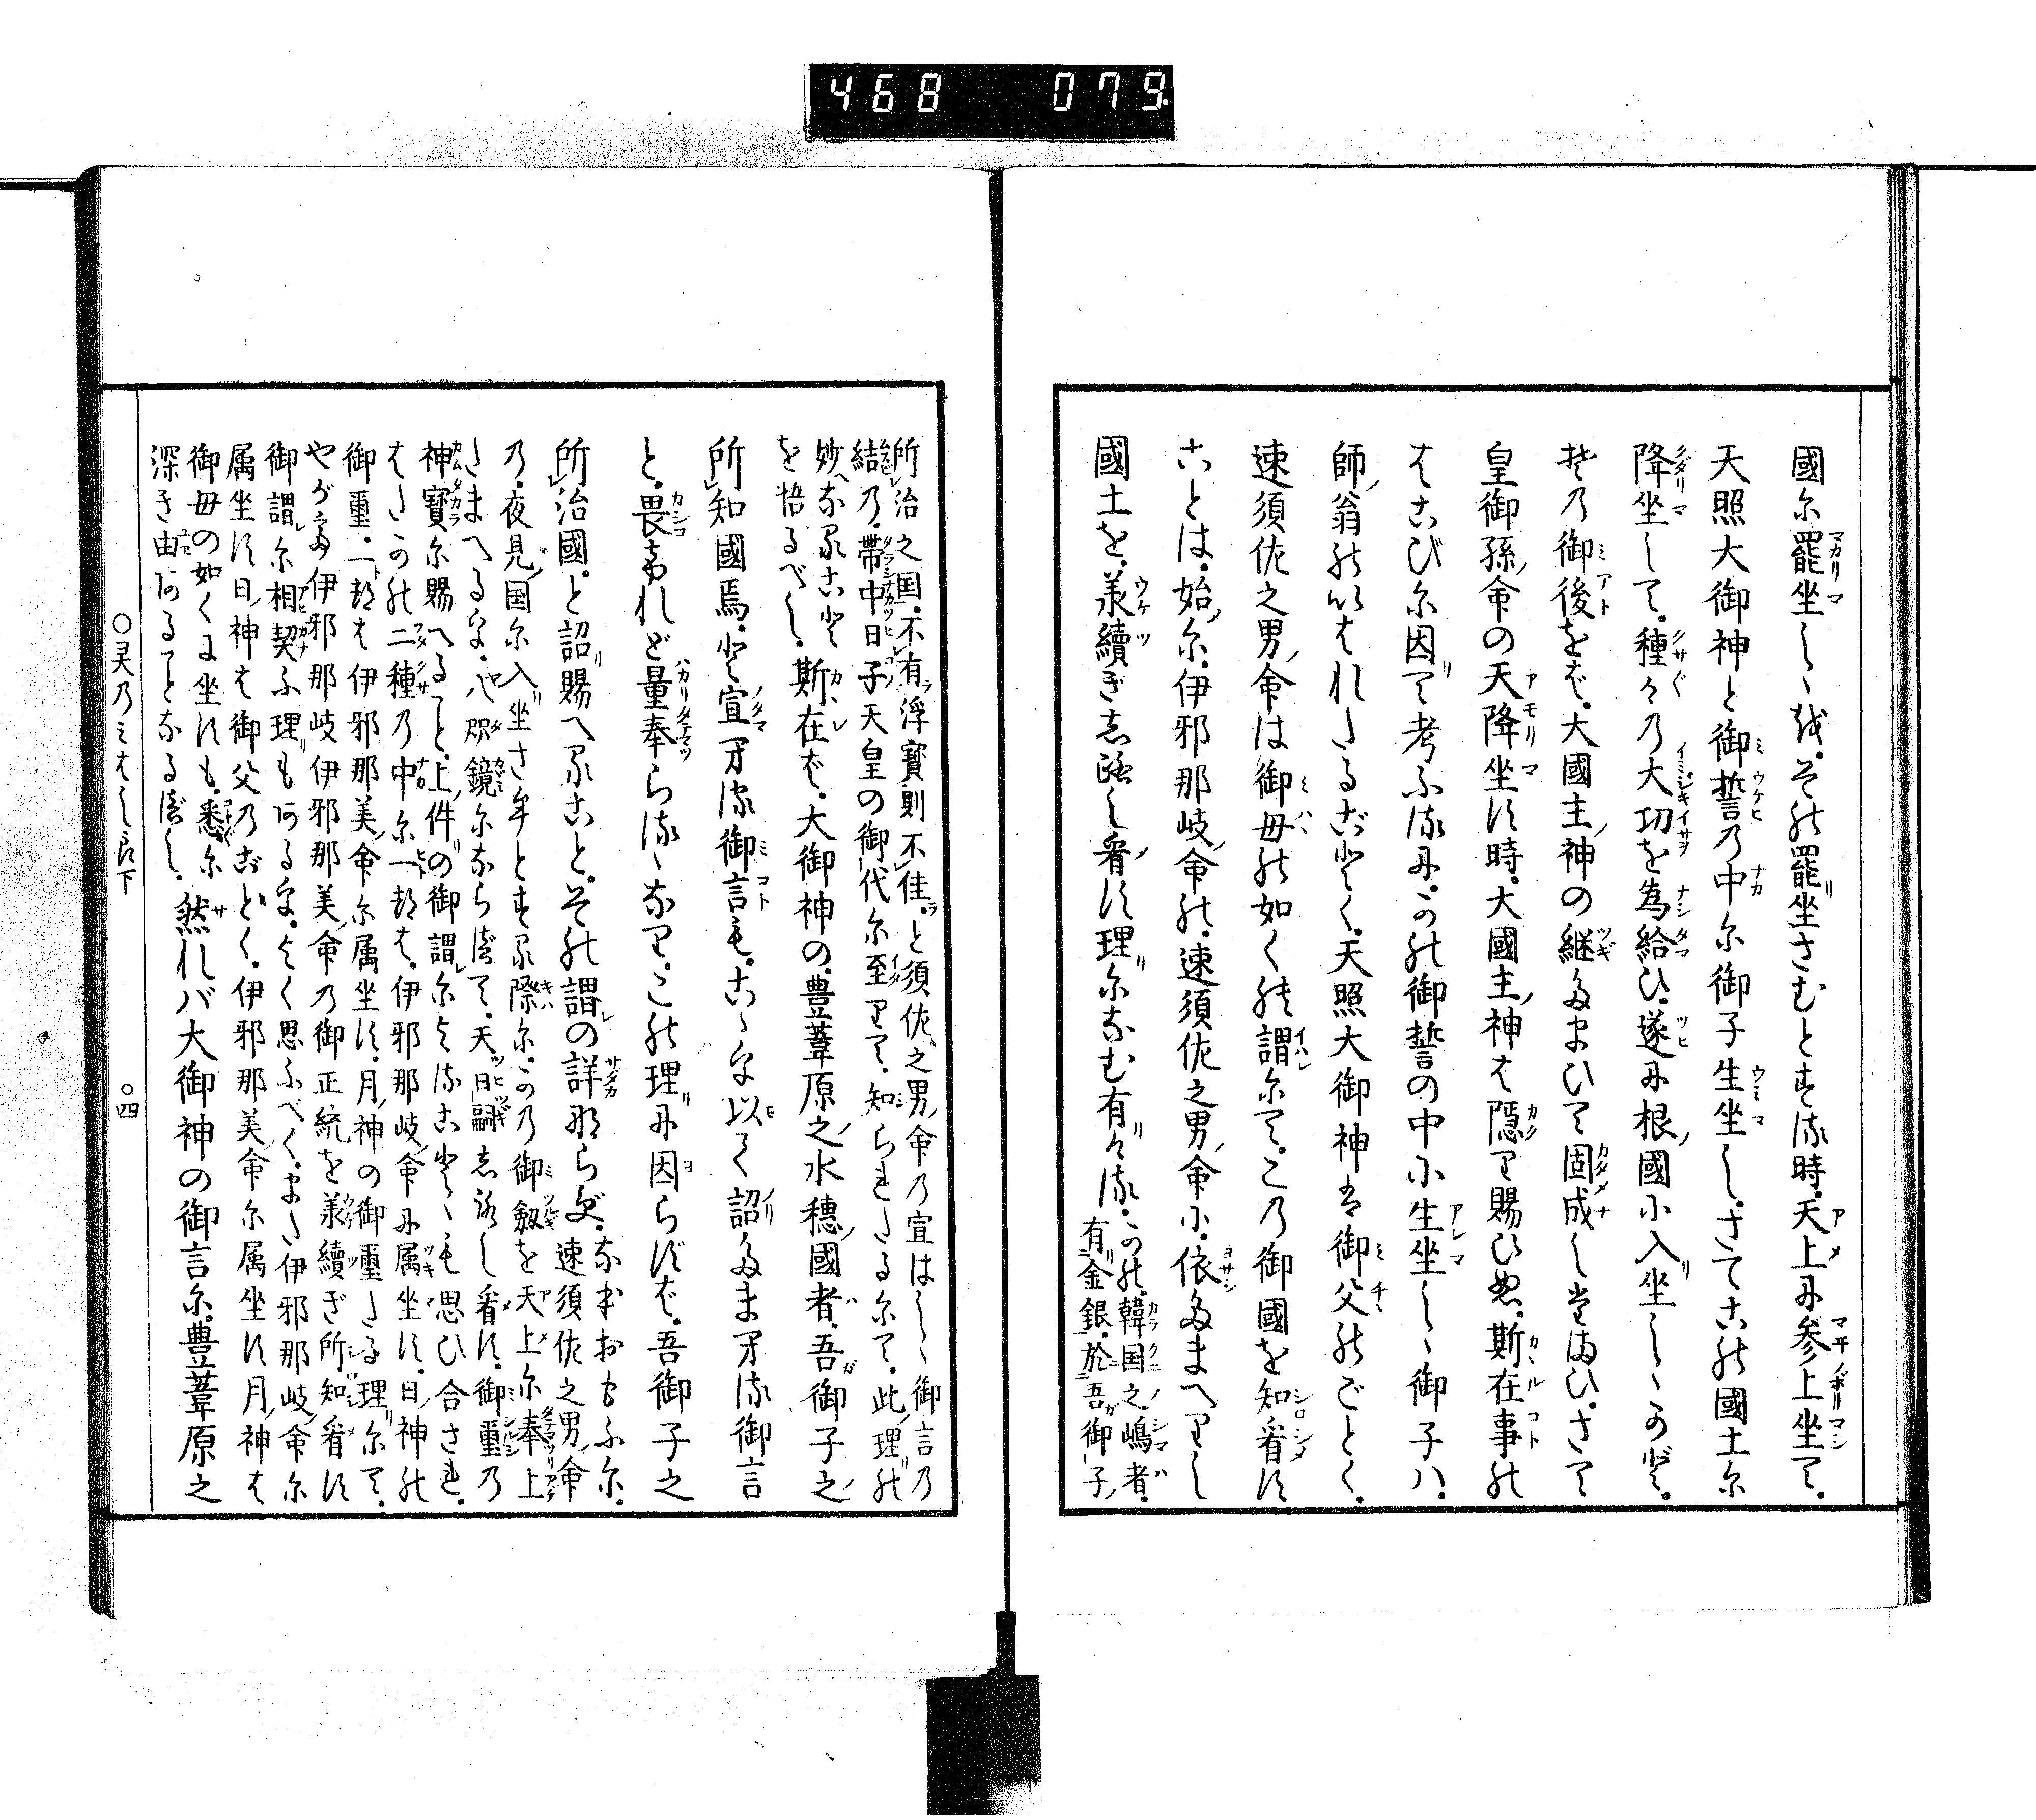 468 079
國尓罷坐しゝ故。その罷坐さむとする時。天上に参上坐て。
天照大御神と御誓乃中尓御子生坐し。さてこの國土尓
降坐して。種々乃大功を為給ひ。遂に根ノ國に入坐しゝかど。
其乃御後をば。大國主ノ神の継たまひて固成し堂まひ。さて
皇御孫ノ命の天降坐す時。大國主ノ神は隠り賜ひぬ。斯在事の
はこび尓因て考ふるに。かの御誓の中に生坐しゝ御子ハ。
師ノ翁のいはれたるごとく。天照大御神は御父のごとく。
速須佐之男ノ命は御母の如くの謂尓て。この御國を知看す
ことは。始ノ尓。伊邪那岐ノ命の。速須佐之男ノ命に。依たまへりし
國土を。承續ぎ志ろし看す理尓なむ有ける。かの。韓国之嶋者。
有金銀。於吾御子ノ
所治之国。不有浮寳則不佳。と須佐之男ノ命乃宣はしゝ御言乃
結乃。帶中日子天皇の御代尓至りて。知られたる尓て。此ノ理の
妙なることを悟るべし。斯在ば。大御神の。豊葦原之水穗國者。吾御子之
所知國焉。と宣へる御言も。こゝを以て詔たまへる御言
と。畏けれど量奉らるゝなり。この理に因らずば。吾御子之
所治國。と詔賜へること。その謂の詳ならず。なほおもふ尓。速須佐之男ノ命
乃。夜見ノ国尓入坐さむとする際尓。かの御劔を天上尓奉上
たまへるを。八咫鏡尓ならべて。天ツ日嗣志ろし看す。御璽乃
神寳尓賜へること。上ノ件の御謂尓よることゝも思ひ合さる。
はたかの二種乃中尓一ツは。伊邪那岐ノ命に属坐す。日ノ神の
御璽。一ツは伊邪那美ノ命尓属坐す。月ノ神の御璽たる理尓て。
やがて伊邪那岐伊邪那美ノ命乃御正統を承續ぎ所知看す
御謂尓相契ふ理もあるを。よく思ふべく。また伊邪那岐ノ命尓
属坐す日ノ神は御父乃ごとく。伊邪那美ノ命尓属坐す月ノ神は
御母の如くに坐すも。悉尓
深き由あることなるべし。然れバ大御神の御言尓。豊葦原之
○霊乃みはしら下 ○四